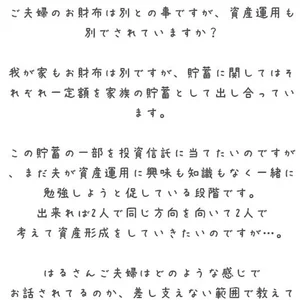 ご夫婦のお財布は別との事ですが、資産運用も
別でされていますか？
我が家もお財布は別ですが、貯蓄に関してはそ
れぞれ一定額を家族の貯蓄として出し合ってい
ます。
この貯蓄の一部を投資信託に当てたいのですが
、まだ夫が資産運用に興味も知識もなく一緒に
勉強しようと促している段階です。
出来れば2人で同じ方向を向いて2人で
考えて資産形成をしていきたいのですが…。
はるさんご夫婦はどのような感じで
お話されてるのか、差し支えない範囲で教えて